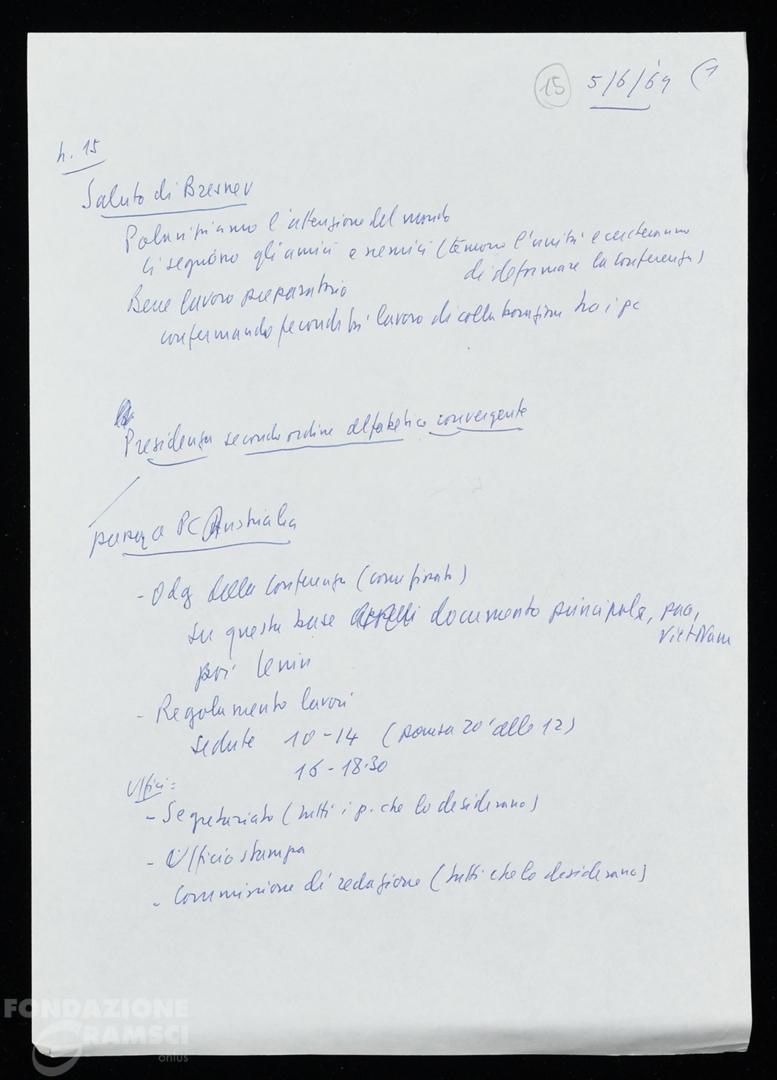 15 5/6/69 (1
h. 15
Saluto di Breznev
Polarizziamo l'attenzione del mondo
Ci seguono gli amici e nemici (temono l'unità e cercheranno
di deformare la conferenza)
Bene lavoro preparatorio
confermando fecondità lavoro di collaborazione tra i pc
Presidenza secondo ordine alfabetico convergente
PC Australia
- Odg della conferenza (come fissato)
su questa base documento principale, pace,
Vietnam
poi Lenin
- Regolamento lavori
Sedute 10-14 (pausa 20' alle 12)
16-18.30
Uffici:
- Segretariato (tutti i p. che lo desiderano)
- Ufficio stampa
- Commissione di redazione (tutti che lo desiderano)
FONDAZIONE
GRAMSCI
onlus